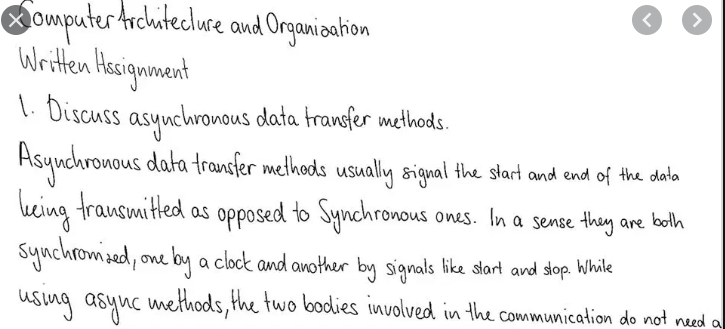 Computer Architecture and Organisation
Written Assignment
1. Discuss asynchronous data transfer methods.
Asynchronous data transfer methods usually signal the start and end of the data
being transmitted as opposed to Synchronous ones. In a sense they are both
synchronised, one by a clock and another by signals like start and stop. While
using async methods, the two bodies involved in the communication do not need a